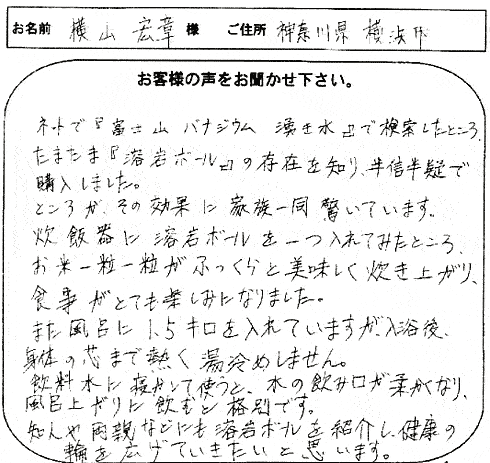 お名前 横山 宏章 様 ご住所 神奈川県 横浜市
お客様の声をお聞かせ下さい。
ネットで『富士山 バナジウム 湧き水』で検索したところ、
たまたま『溶岩ボール』の存在を知り、半信半疑で
購入しました。
ところが、その効果に家族一同驚いています。
炊飯器に溶岩ボールを一つ入れてみたところ、
お米一粒一粒がふっくらと美味しく炊き上がり、
食事がとても楽しみになりました。
また風呂に1.5キロを入れていますが、入浴後、
身体の芯まで熱く湯冷めしません。
飲料水に寝かして使うと、水の飲み口が柔かくなり、
風呂上がりに飲むと格別です。
知人や両親などにも溶岩ボールを紹介し、健康の
輪を広げていきたいと思います。